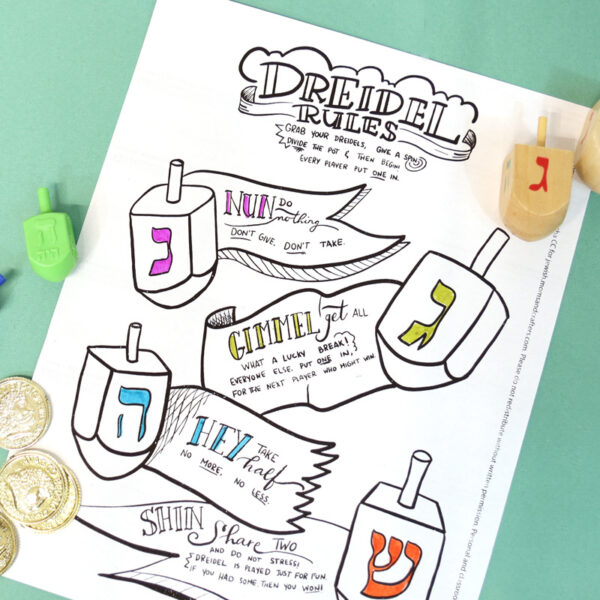 DREIDEL
RULES
GRAB YOUR DREIDELS, GIVE A SPIN,
DIVIDE THE POT & THEN BEGIN!
EVERY PLAYER PUT ONE IN.
ג
נ
NUN DO nothing
DON'T GIVE, DON'T TAKE.
ג
GIMMEL get ALL
WHAT A LUCKY BREAK!
EVERYONE ELSE, PUT ONE IN,
FOR THE NEXT PLAYER WHO MIGHT WIN
ה
HEY TAKE half
NO MORE, NO LESS.
SHIN Share TWO
AND DO NOT STRESS!
DREIDEL IS PLAYED JUST FOR FUN.
IF YOU HAD SOME THEN YOU WON!
ש
CC for jewish.momsandcrafters.com. Please do not redistribute without written permission. Personal and